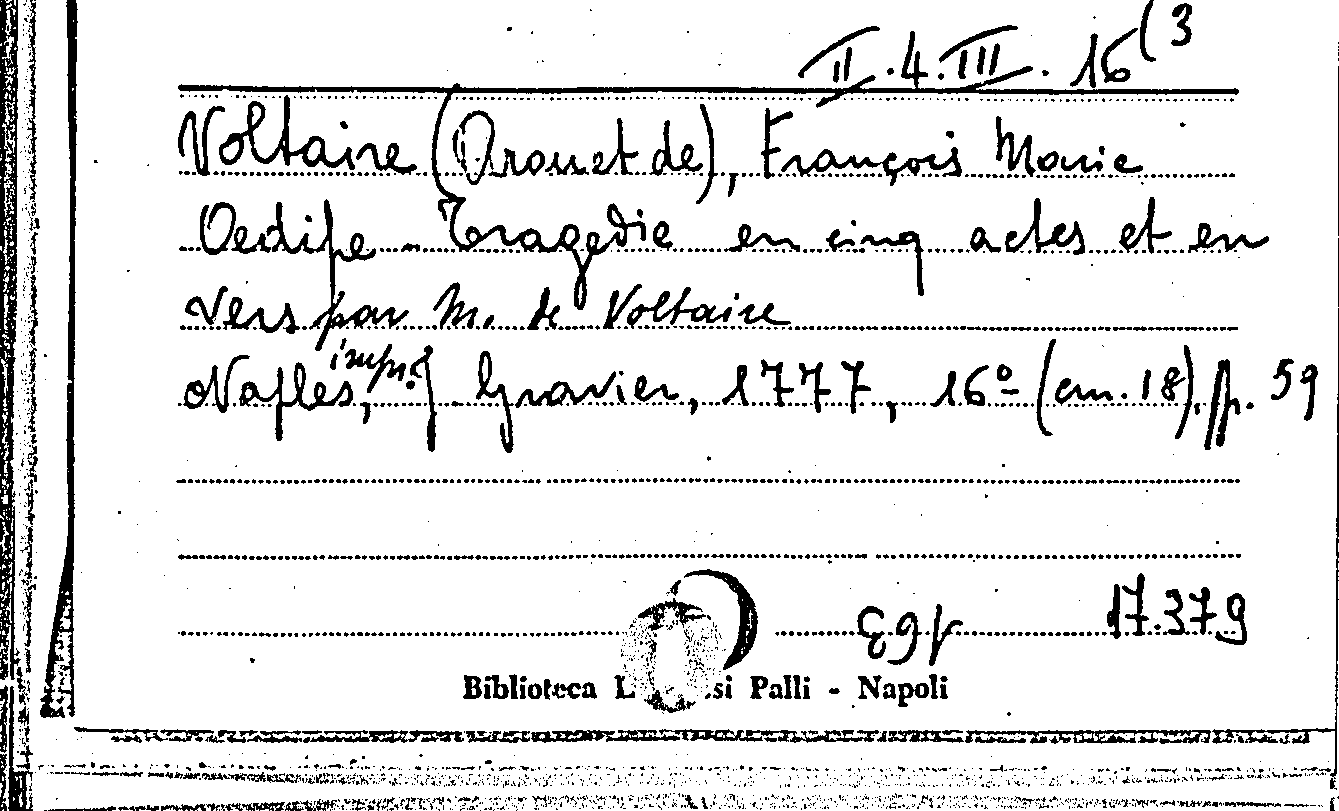 II.4.III.16(3
Voltaire (Arouet de), François Marie
Oedipe - Tragedie en cinq actes et en
vers par M. de Voltaire
Naples, impr. J. Gravier, 1777, 16º (cm. 18). pp. 59
17.379
Biblioteca L si Palli - Napoli